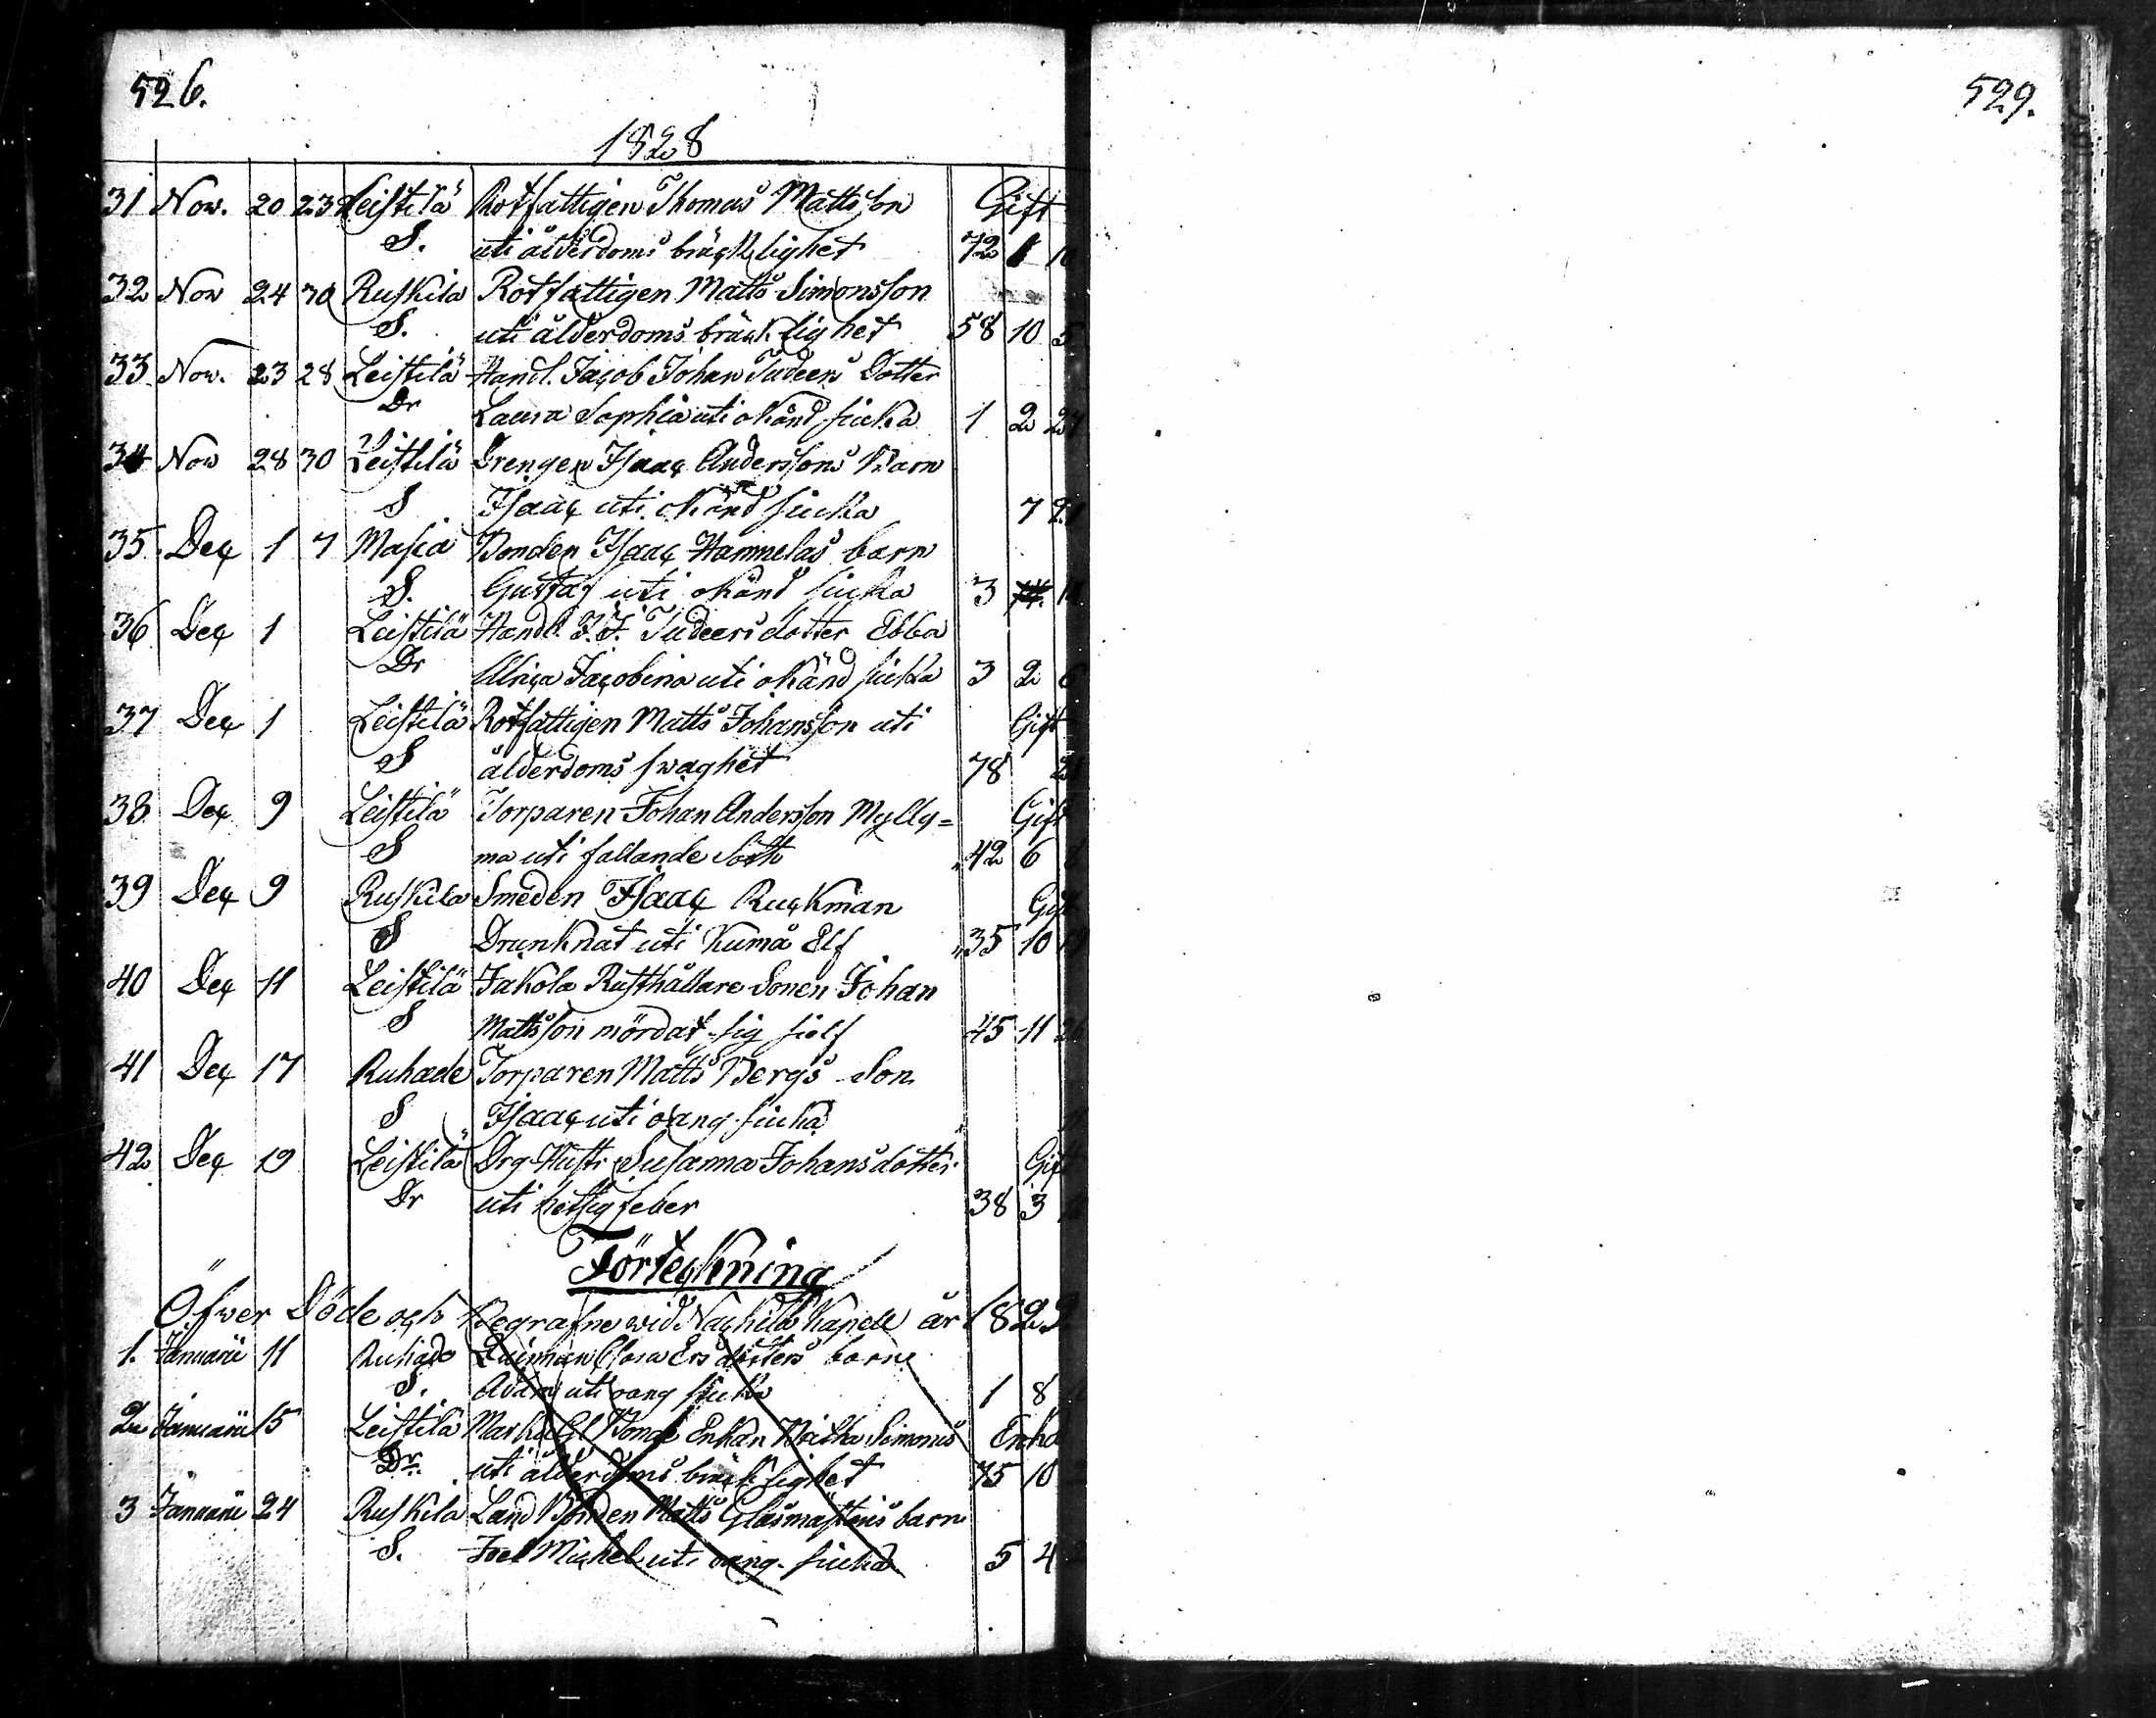 526.
529.
1828
31 Nov. 20 23 Leistilä Rotfattigen Thomas Mattsson Gift
S. uti ålderdoms bräcklighet 72
32 Nov 24 30 Ruskila Rotfattigen Matts Simonsson
S. uti ålderdoms bräcklighet 58 10 5
33 Nov. 23 28 Leistilä Handl. Jacob Johan Tudeers Dotter
Dr Laura Sophia uti okänd siuka 1 2
34 Nov 28 30 Leistilä Drengen Isaac Anderssons Barn
S Isaac uti okänd siuka 7
35 Dec 1 7 Masia Bonden Isaac Hannulas barn
S. Gustaf uti okänd siuka 3
36 Dec 1 Leistilä Handl. J. J. Tudeers dotter Ebba
Dr Ulrica Jacobina uti okänd siuka 3 2 6
37 Dec 1 Leistilä Rotfattigen Matts Johansson uti Gift
S ålderdoms swaghet 78
38 Dec 9 Leistilä Torparen Johan Andersson Mylly= Gift
S ma uti fallande Sott 42 6
39 Dec 9 Ruskila Smeden Isaac Ruckman Gift
S Drunknat uti Kumå Elf 35 10
40 Dec 11 Leistilä Jakola Rusthållare Sonen Johan
S Mattsson mördat sig sielf 45 11
41 Dec 17 Ruhade Torparen Matts Bergs Son
S Isaac uti oang. siuka
42 Dec 19 Leistilä Drg Hustr Susanna Johansdotter Gift
Dr uti hettsig feber 38 3
Förtekning
Öfwer Döde och Begrafne wid Nackila Kapell år 1829
1. Januarii 11 Ruhade Clara Ersdotters barn
S. Adam uti oang siuka 1 8
2 Januarii 15 Leistilä Bonde Enkan Simons Enka
Dr. uti ålderdoms bräcklighet 75 10
3 Januarii 24 Ruskila Land Bonden Matts Glasmästeris barn
S. Joel Michel uti oang. siuka 5 4